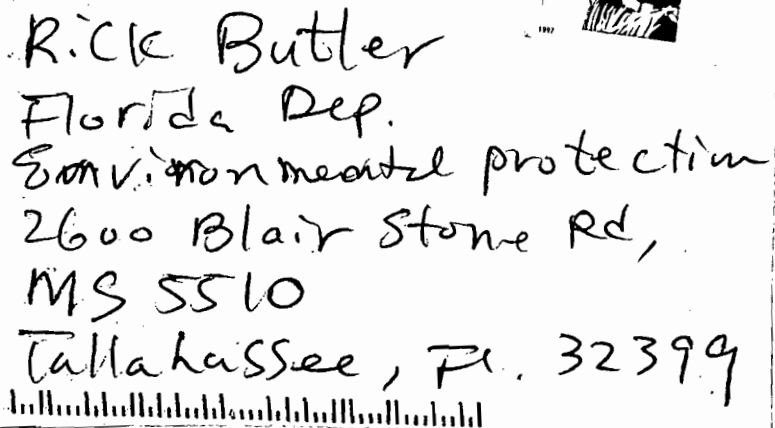 1997
Rick Butler
Florida Dep.
Environmental protection
2600 Blair Stone Rd,
MS 5510
Tallahassee, Fl. 32399